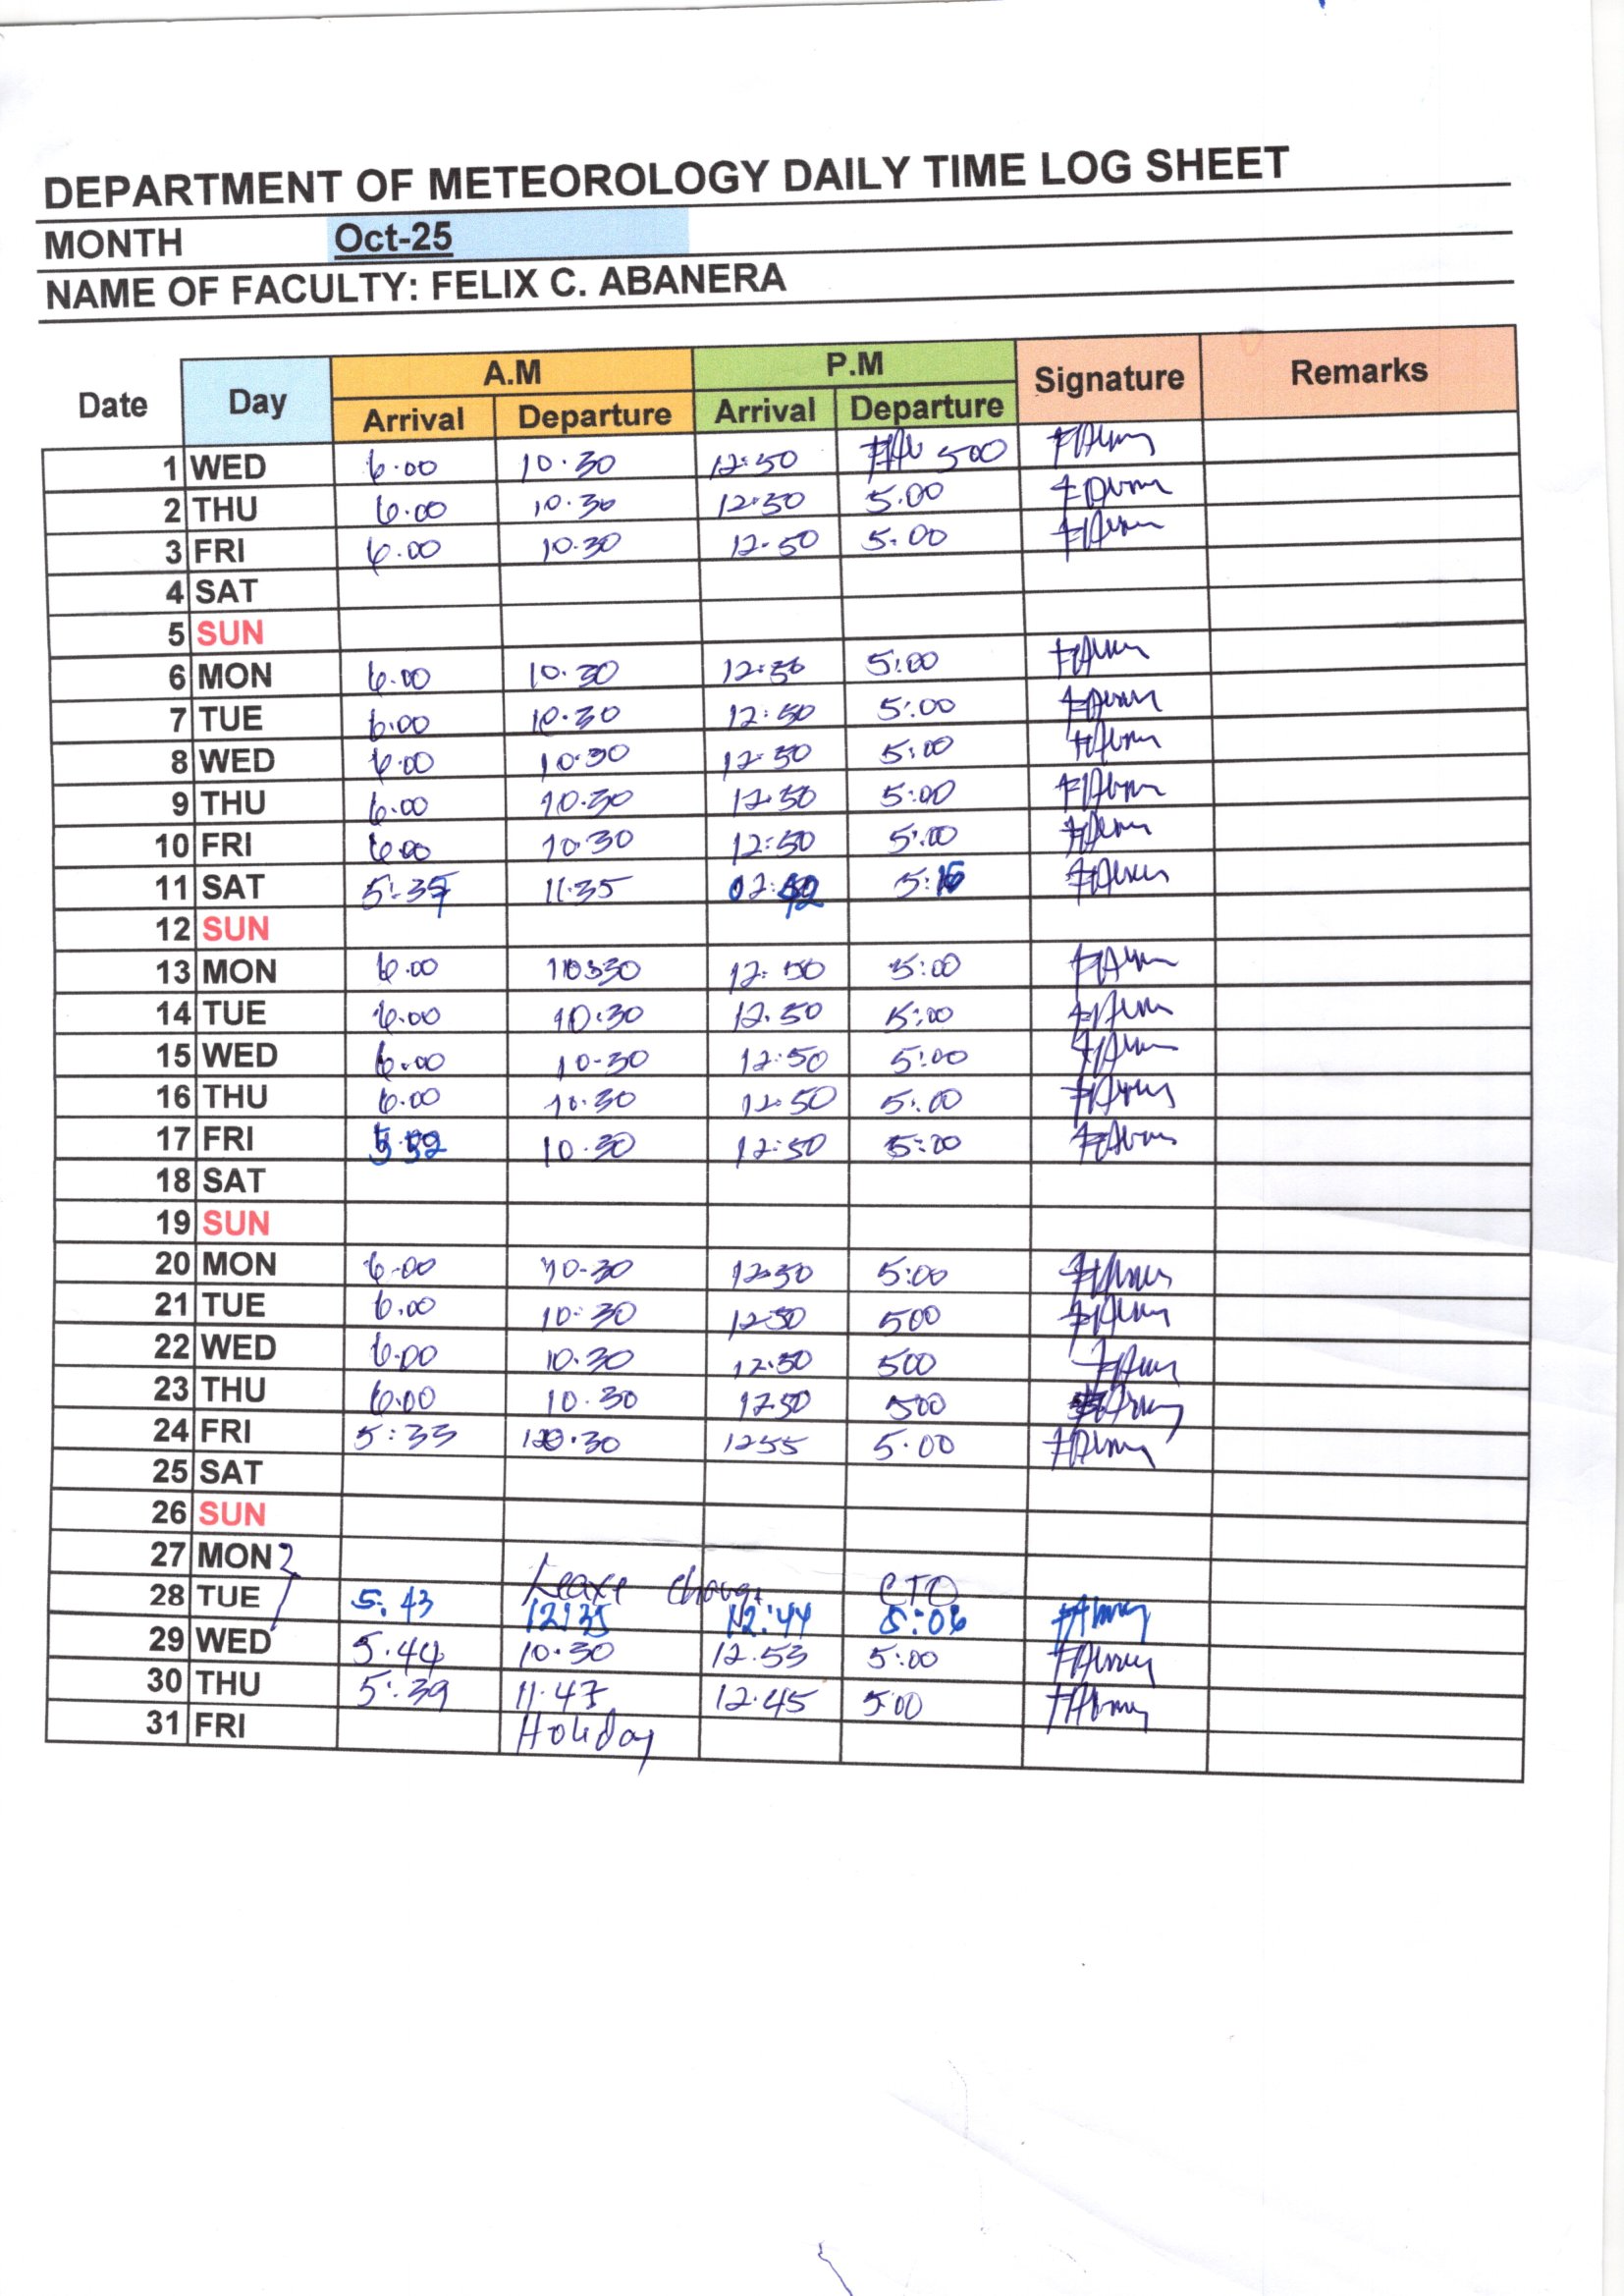 DEPARTMENT OF METEOROLOGY DAILY TIME LOG SHEET
MONTH Oct-25
NAME OF FACULTY: FELIX C. ABANERA
Date Day A.M P.M Signature Remarks
Arrival Departure Arrival Departure
1 WED 6.00 10.30 12:50 500
2 THU 6.00 10.30 12:50 5.00
3 FRI 6.00 10.30 12.50 5.00
4 SAT
5 SUN
6 MON 6.00 10.30 12:50 5:00
7 TUE 6:00 10.30 12:50 5:00
8 WED 6.00 10:30 12:50 5:00
9 THU 6.00 10.30 12.50 5:00
10 FRI 6.00 10.30 12:50 5:00
11 SAT 5:37 11:35 5:15
12 SUN
13 MON 6.00 12:50 5:00
14 TUE 6.00 10:30 12.50 5:00
15 WED 6.00 10-30 12:50 5:00
16 THU 6.00 10.30 12.50 5:00
17 FRI 10.30 12:50 5:00
18 SAT
19 SUN
20 MON 6-00 10-30 12:50 5:00
21 TUE 6.00 10:30 1250 500
22 WED 6.00 10.30 12.50 500
23 THU 6.00 10.30 1250 500
24 FRI 5:33 1255 5.00
25 SAT
26 SUN
27 MON Leave CTO
28 TUE 5:43 12:35 12:44 5:06
29 WED 5.44 10.30 12.53 5:00
30 THU 5:39 11.47 12.45 5:00
31 FRI Holiday